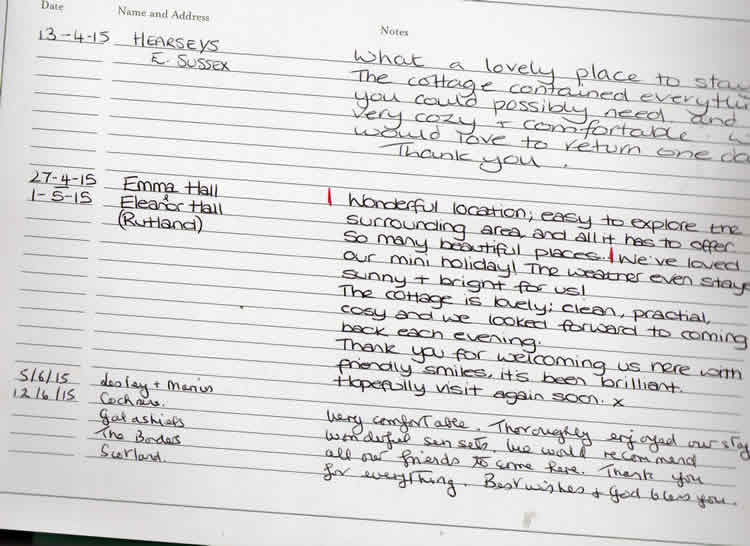 Date Name and Address Notes
13-4-15 HEARSEYS
E. SUSSEX
What a lovely place to stay
The cottage contained everythi
you could possibly need and
very cozy + comfortable. W
would love to return one da
Thank you.
27-4-15 Emma Hall
1-5-15 & Eleanor Hall
(Rutland)
Wonderful location; easy to explore the
surrounding area and all it has to offer.
So many beautiful places. We've loved
our mini holiday! The weather even staye
sunny + bright for us!
The cottage is lovely; clean, practial,
cosy and we looked forward to coming
back each evening.
Thank you for welcoming us here with
friendly smiles. it's been brilliant.
Hopefully visit again soon. x
5/6/15 Lesley +
12/6/15 Cochrane.
Galashiels
The Borders
Scotland.
Very comfortable. Thoroughly enjoyed our stay
wonderful sunsets. We would recommend
all our friends to come here. Thank you
for everything. Best wishes + God bless you.